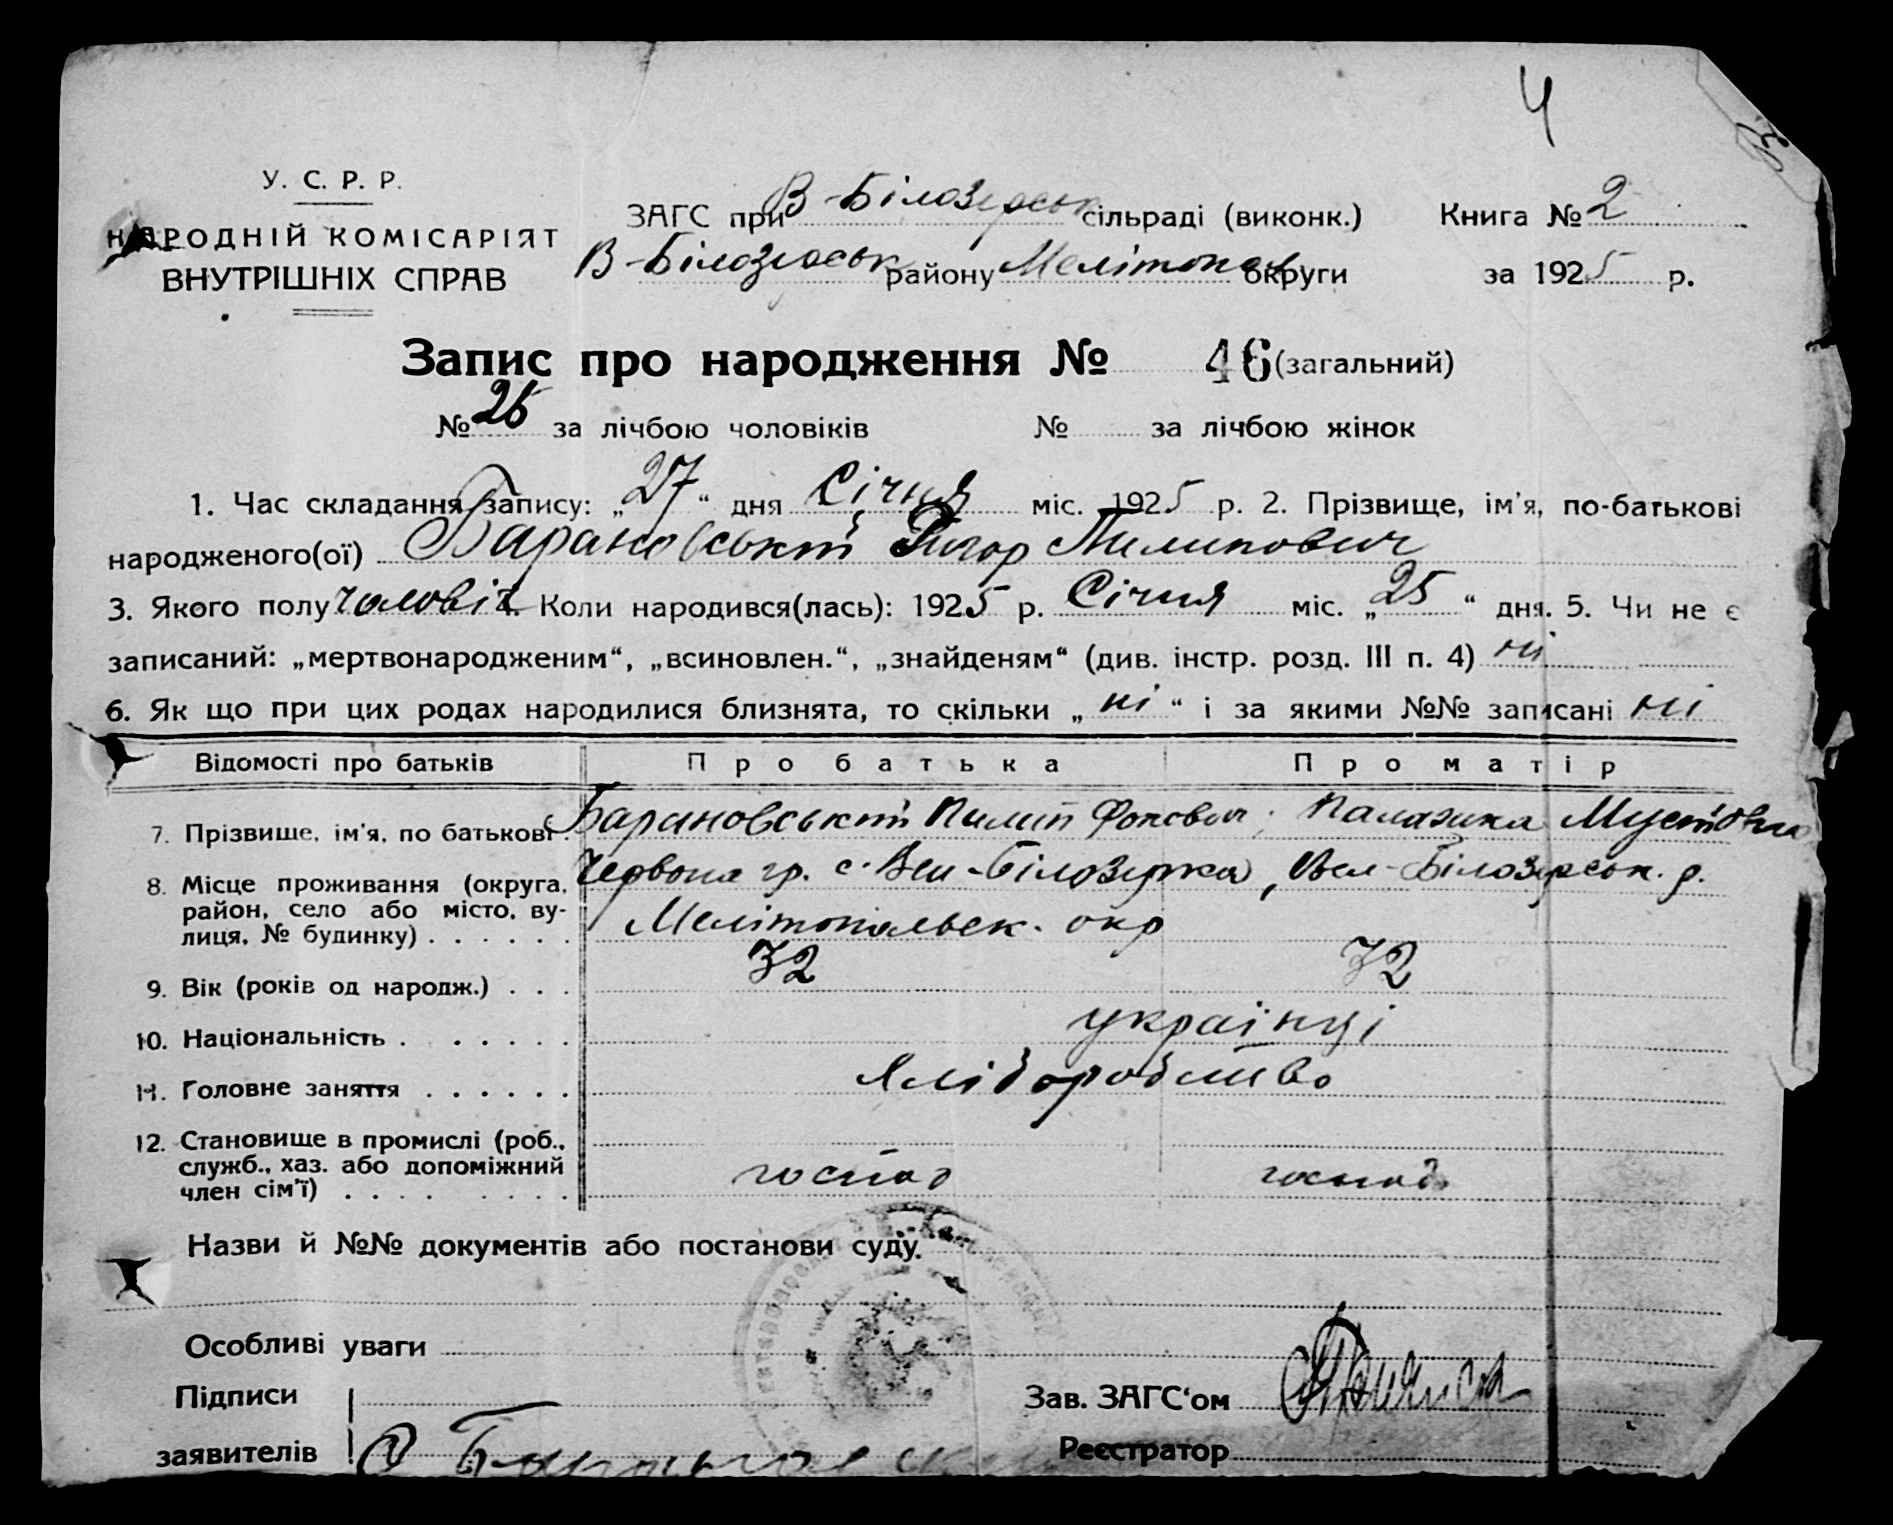 4
У. С. Р. Р.
НАРОДНІЙ КОМІСАРІЯТ
ВНУТРІШНІХ СПРАВ
ЗАГС при В-Білозерськ сільраді (виконк.) Книга № 2
В-Білозерськ району Мелітопол округи за 1925 р.
Запис про народження № 46 (загальний)
№ 26 за лічбою чоловіків № за лічбою жінок
1. Час складання запису: „27“ дня Січня міс. 1925 р. 2. Прізвище, ім'я, по-батькові
народженого(ої) Барановський Григор Пилипович
3. Якого полу чоловіч. 4. Коли народився(лась): 1925 р. Січня міс. „25“ дня. 5. Чи не є
записаний: „мертвонародженим“, „всиновлен.“, „знайденям“ (див. інстр. розд. III п. 4) ні
6. Як що при цих родах народилися близнята, то скільки „ні“ і за якими №№ записані ні
Відомості про батьків Про батька Про матір
7. Прізвище, ім'я, по батькові. Барановський Пилип Фокович Палажка
8. Місце проживання (округа, Червона гр. с. Вел-Білозерка, Вел-Білозерськ. р.
район, село або місто, ву-
лиця, № будинку) . . . . . . Мелітопольськ. окр
9. Вік (років од народж.) . . . 32 32
10. Національність . . . . . . . українці
11. Головне заняття . . . . . . хліборобство
12. Становище в промислі (роб.,
служб., хаз. або допоміжний господ господ
член сім'ї) . . . . . . . . .
Назви й №№ документів або постанови суду.
Особливі уваги
Підписи
Зав. ЗАГС'ом
заявителів
Реєстратор